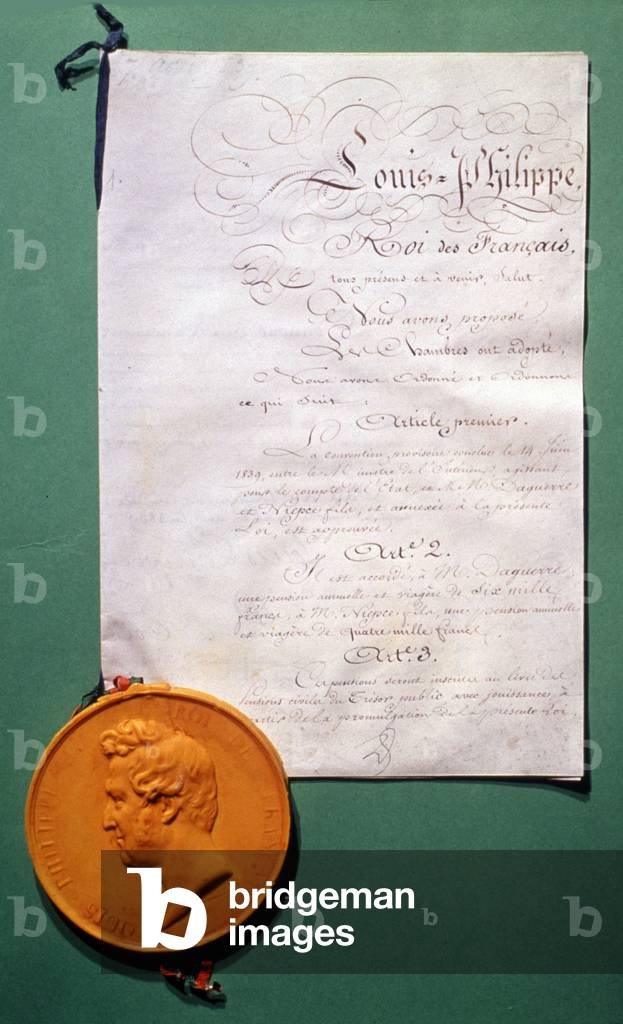 Louis=Philippe,
Roi des Français,
A tous présens et à venir, Salut.
Nous avons proposé,
Les Chambres ont adopté,
Nous avons Ordonné et Ordonnons
ce qui Suit :
Article premier.
La convention provisoire conclue le 14 Juin
1839, entre le Ministre de l'Intérieur, agissant
pour le compte de l'État, et M.M. Daguerre
et Niepce fils, et annexée à la présente
Loi, est approuvée.
Art.e 2.
Il est accordé, à M. Daguerre,
une pension annuelle et viagère de Six mille
francs, à M. Niepce fils, une pension annuelle
et viagère de quatre mille francs.
Art.e 3.
Ces pensions seront inscrites au livre des
Pensions civiles du Trésor public avec jouissance, à
partir de la promulgation de la présente Loi.
PHILIPPE ROI
bridgeman
images